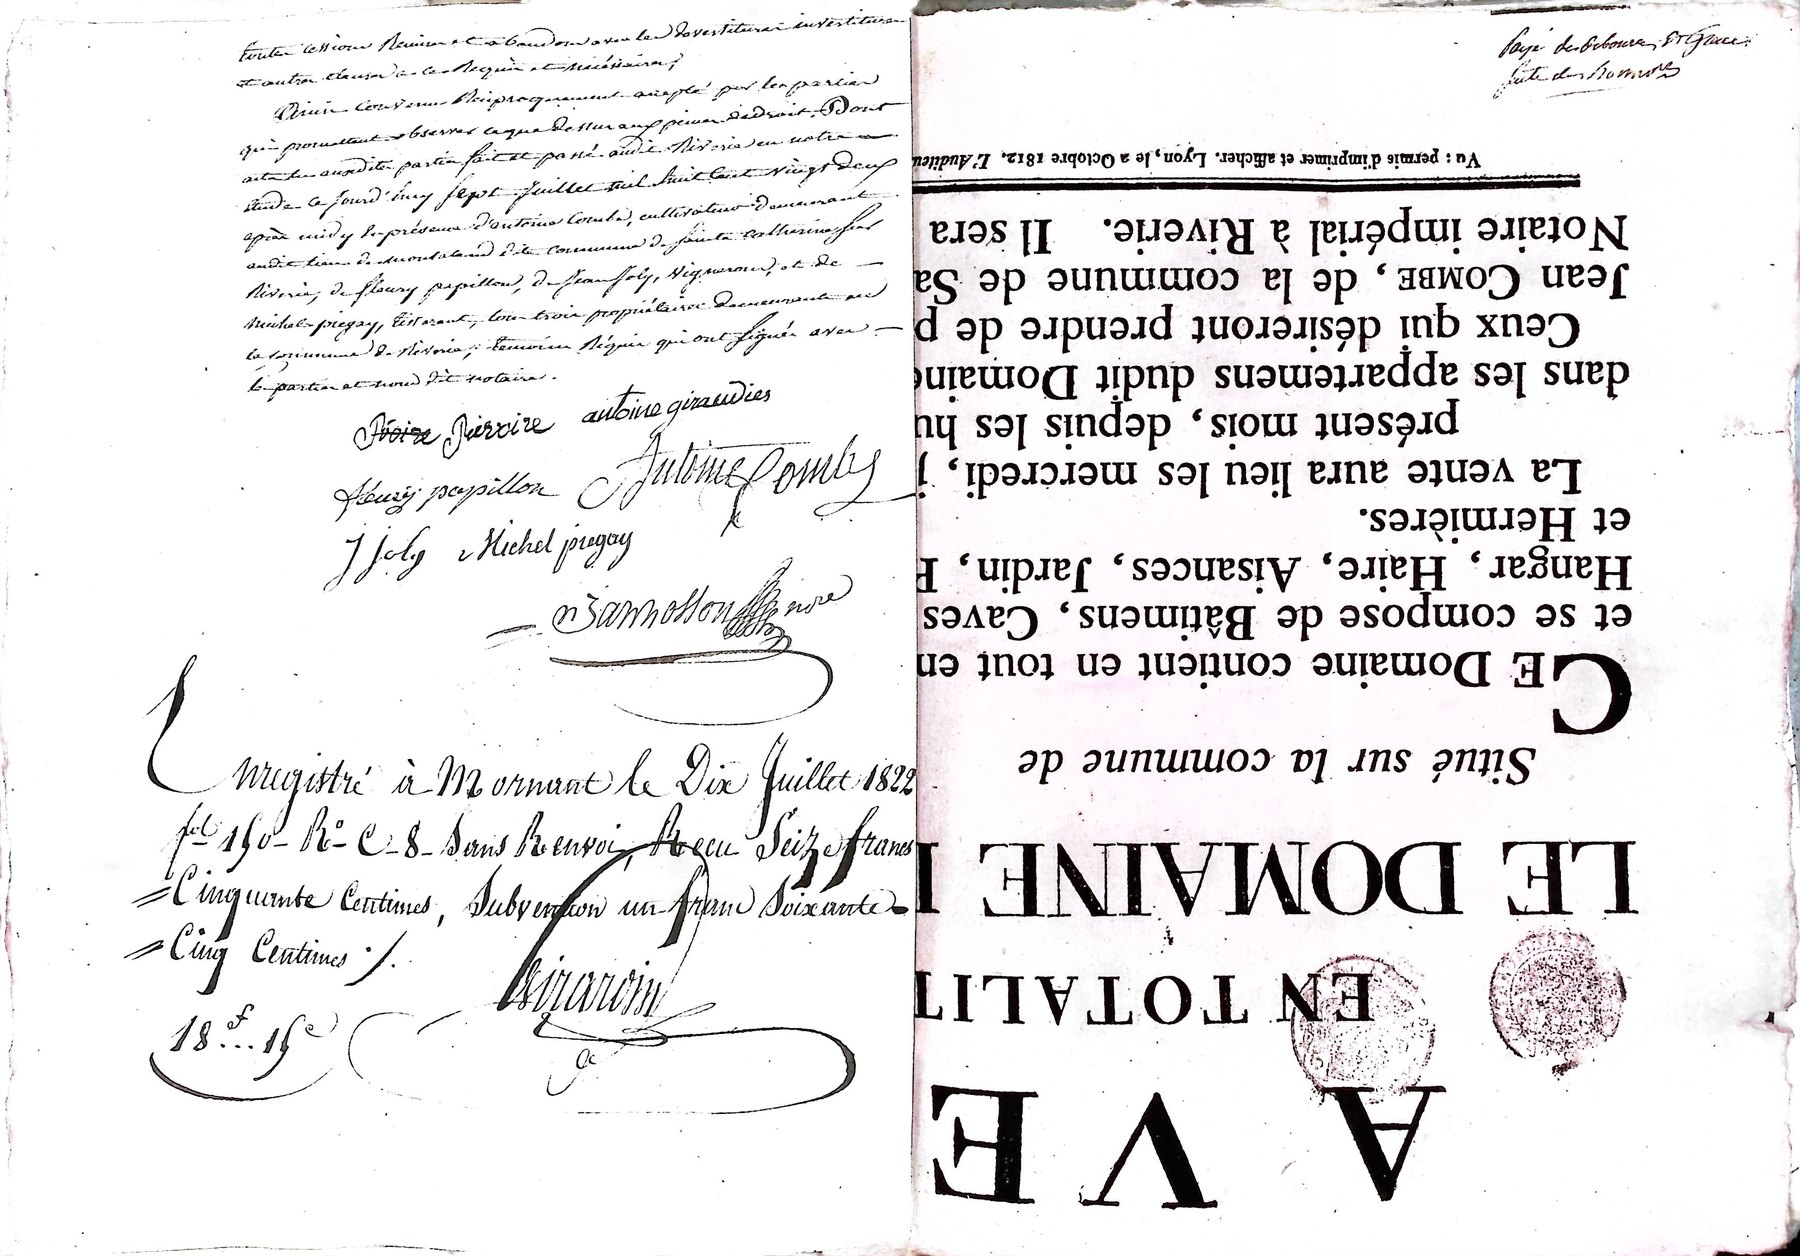 toutes cessions Remises et abandons avec les devestitures investitures
et autres clauses à ce Requises et nécéssaires;
Ainsi convenu Réciproquement accepté par les parties
qui promettent observer ce que dessus aux peines de droit. Dont
acte les susdites parties fait et passé audit Riverie en notre
étude ce jourd'huy sept juillet mil huit cent vingt deux
après midy En présence d'antoine Combe, cultivateur demeurant
audit lieu de commune de Sainte Catherine sur
Riverie, de fleury papillon, de Jean Joly, vignerons, et de
Michel piegay, tisserant, tous trois propriétaires demeurants en
la Commune de Riverie; témoins Réquis qui ont signés avec
les parties et nous dit notaire.
Pervoire antoine giraudies
fleury papillon Antoine Combe
J Joly Michel piegay
nore
Enregistré à Mornant le Dix Juillet 1822
fol 150 Ro C 8 Sans Renvoi, Recu Seize francs
Cinquante Centimes, Subvention un franc Soixante
Cinq Centimes ./.
Girardin
18f... 15c
A VE
EN TOTALIT
LE DOMAINE
Situé sur la commune de
CE Domaine contient en tout en
et se compose de Bâtimens, Caves
Hangar, Haire, Aisances, Jardin, P
et Hermières.
La vente aura lieu les mercredi, j
présent mois, depuis les hu
dans les appartemens dudit Domaine
Ceux qui désireront prendre de p
Jean COMBE, de la commune de Sa
Notaire impérial à Riverie. Il sera
Vu : permis d'imprimer et afficher. Lyon, le 2 Octobre 1812. L'Auditeu